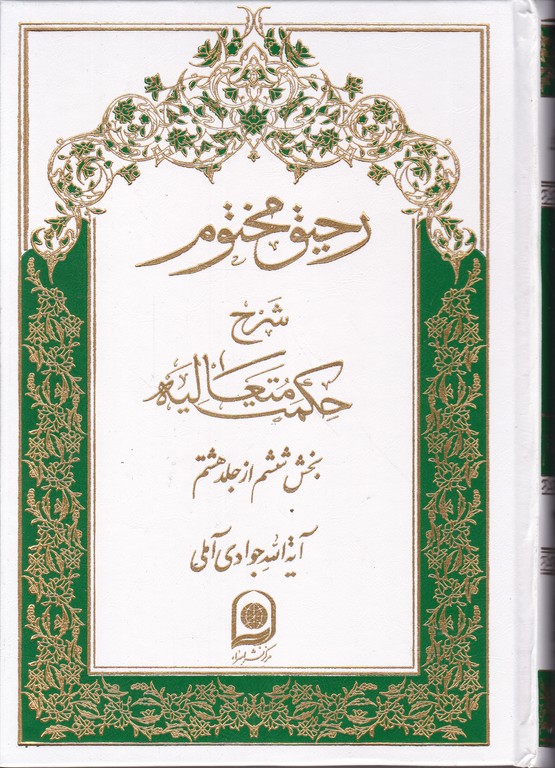 رحیق مختوم
شرح
حکمت متعالیه
بخش ششم از جلد هشتم
آیة الله جوادی آملی
مرکز نشر اسراء